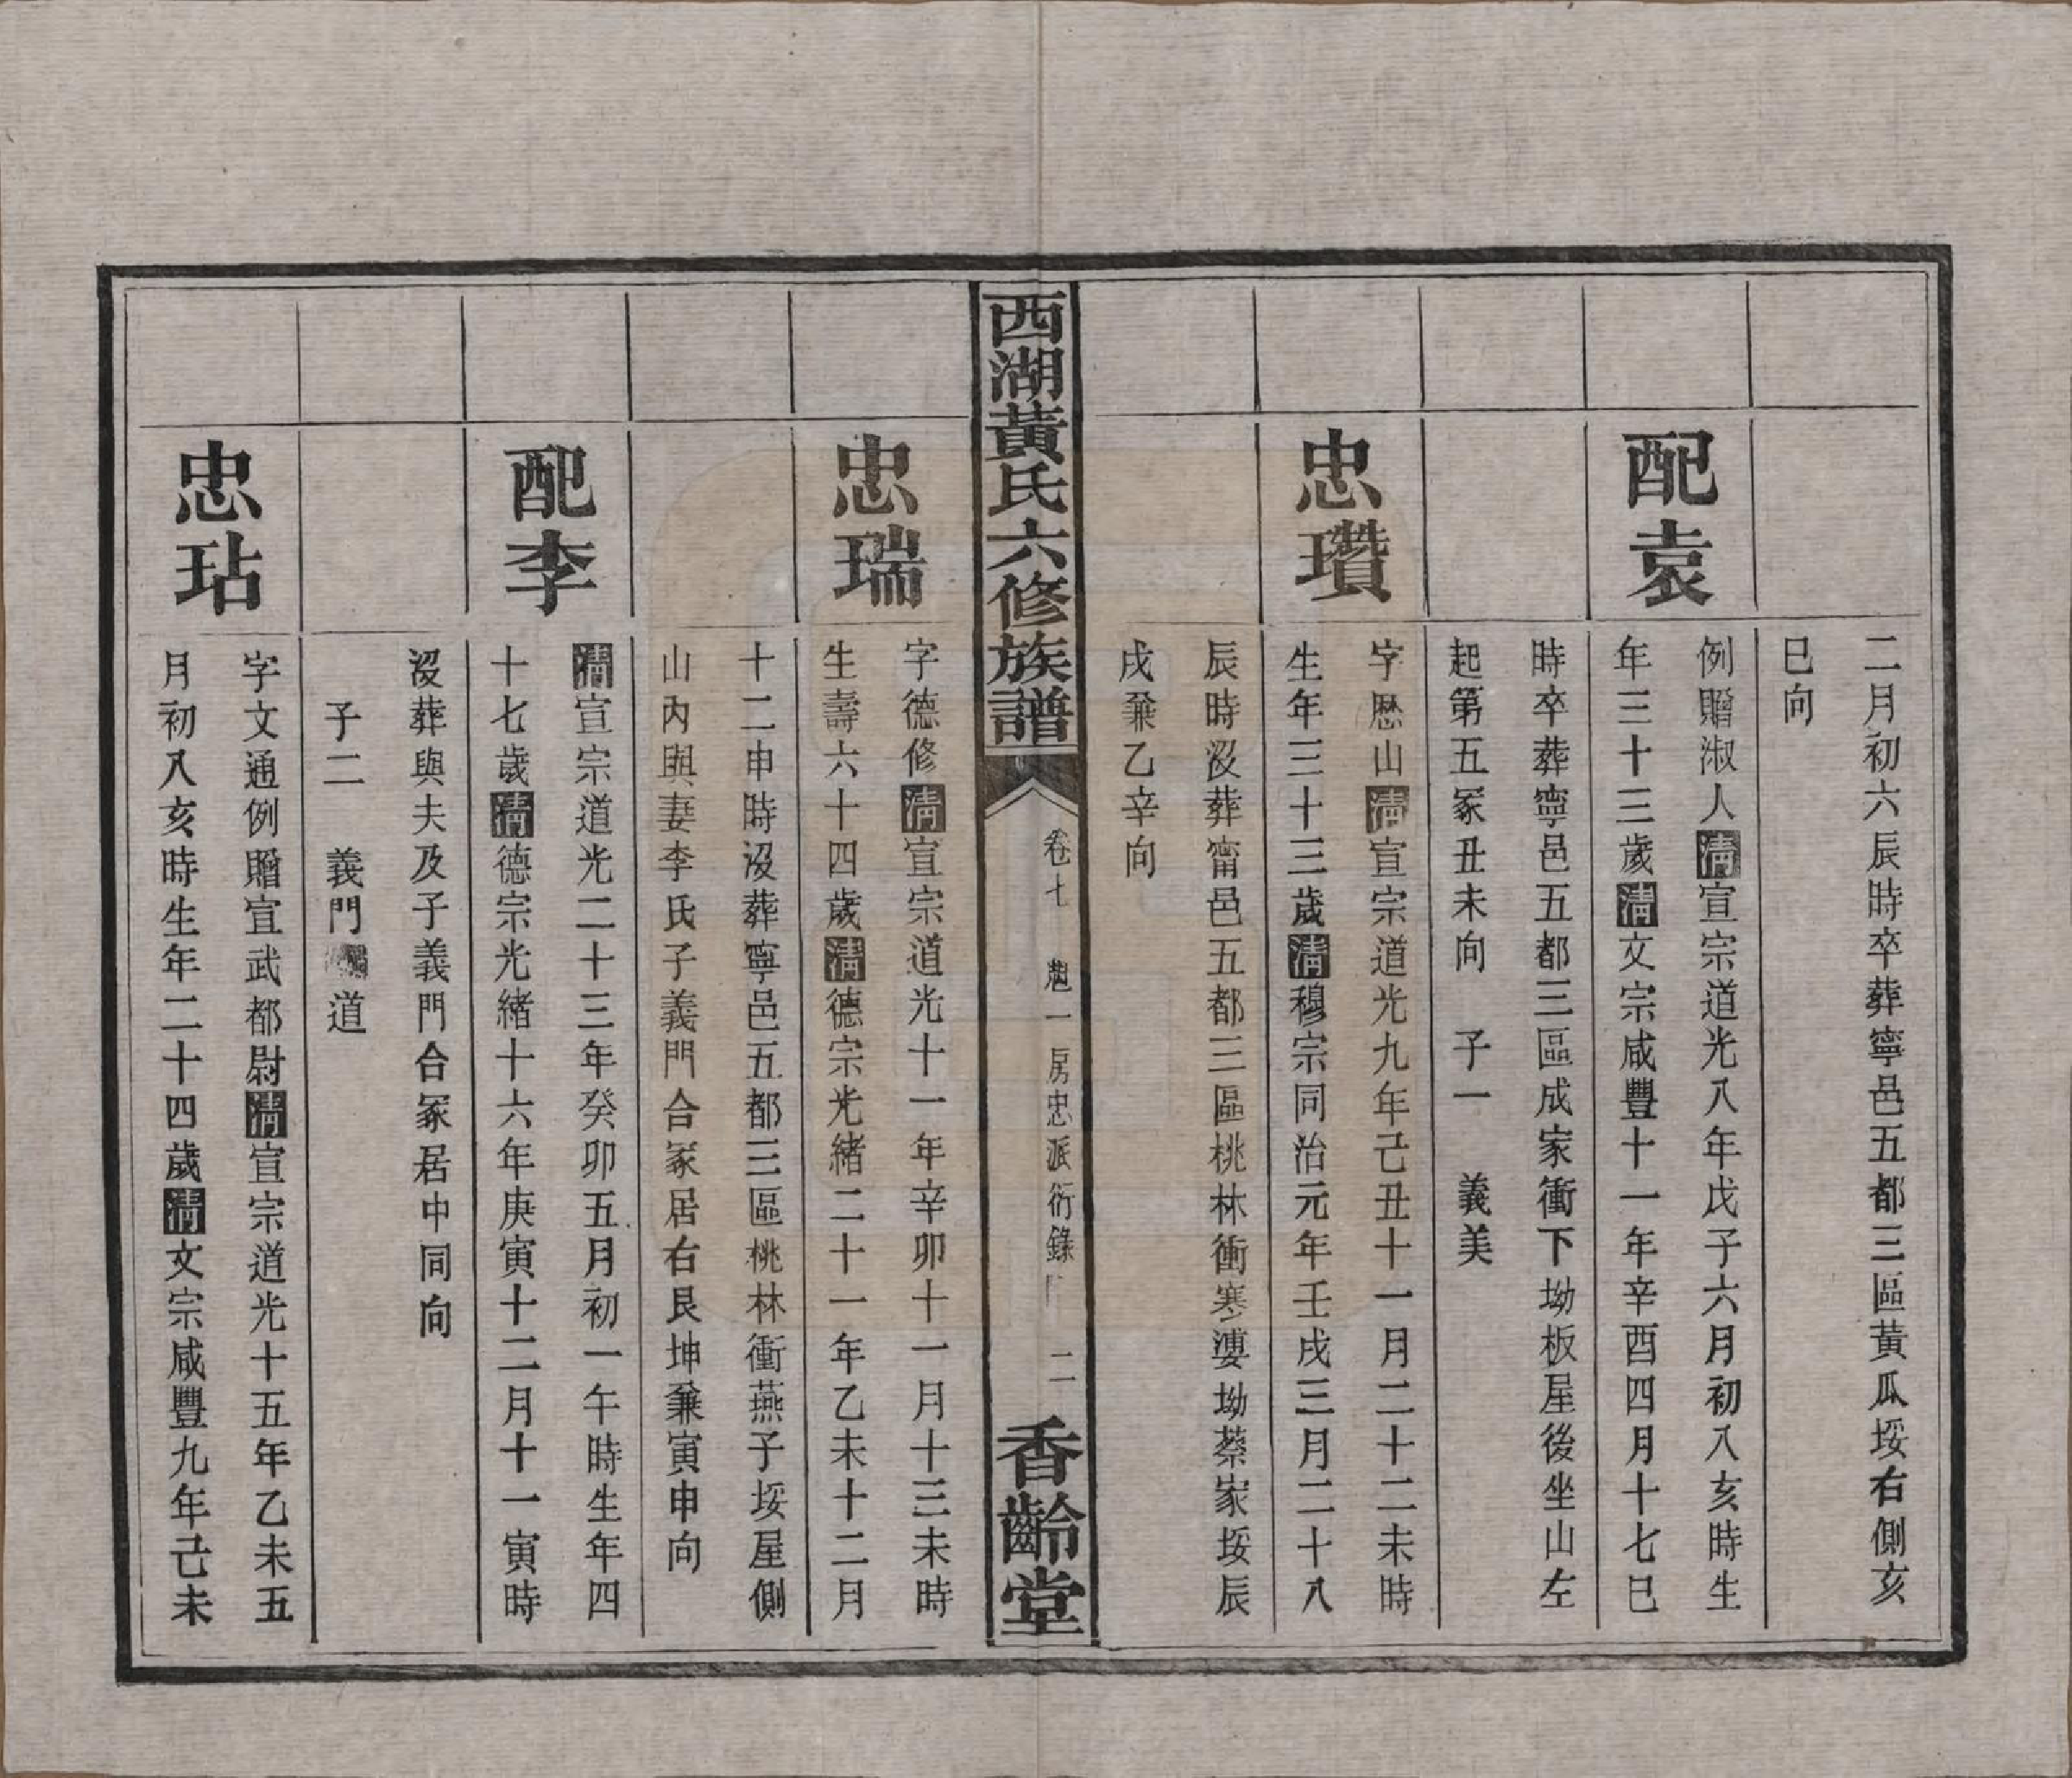 二月初六辰時卒葬寧邑五都三區黃瓜垵右側亥
巳向
配袁
例贈淑人清宣宗道光八年戊子六月初八亥時生
年三十三歲清文宗咸豐十一年辛酉四月十七巳
時卒葬寧邑五都三區成家衝下坳板屋後坐山左
起第五冢丑未向 子一 義美
忠瓚
字歷山清宣宗道光九年己丑十一月二十二未時
生年三十三歲清穆宗同治元年壬戌三月二十八
辰時沒葬甯邑五都三區桃林衝寒漊坳蔡家垵辰
戌兼乙辛向
西湖黃氏六修族譜
卷七 一房忠派衍錄 二
香齡堂
忠瑞
字德修清宣宗道光十一年辛卯十一月十三未時
生壽六十四歲清德宗光緒二十一年乙未十二月
十二申時沒葬寧邑五都三區桃林衝燕子垵屋側
山內與妻李氏子義門合冢居右艮坤兼寅申向
配李
清宣宗道光二十三年癸卯五月初一午時生年四
十七歲清德宗光緒十六年庚寅十二月十一寅時
沒葬與夫及子義門合冢居中同向
子二 義門 道
忠玷
字文通例贈宣武都尉清宣宗道光十五年乙未五
月初八亥時生年二十四歲清文宗咸豐九年己未